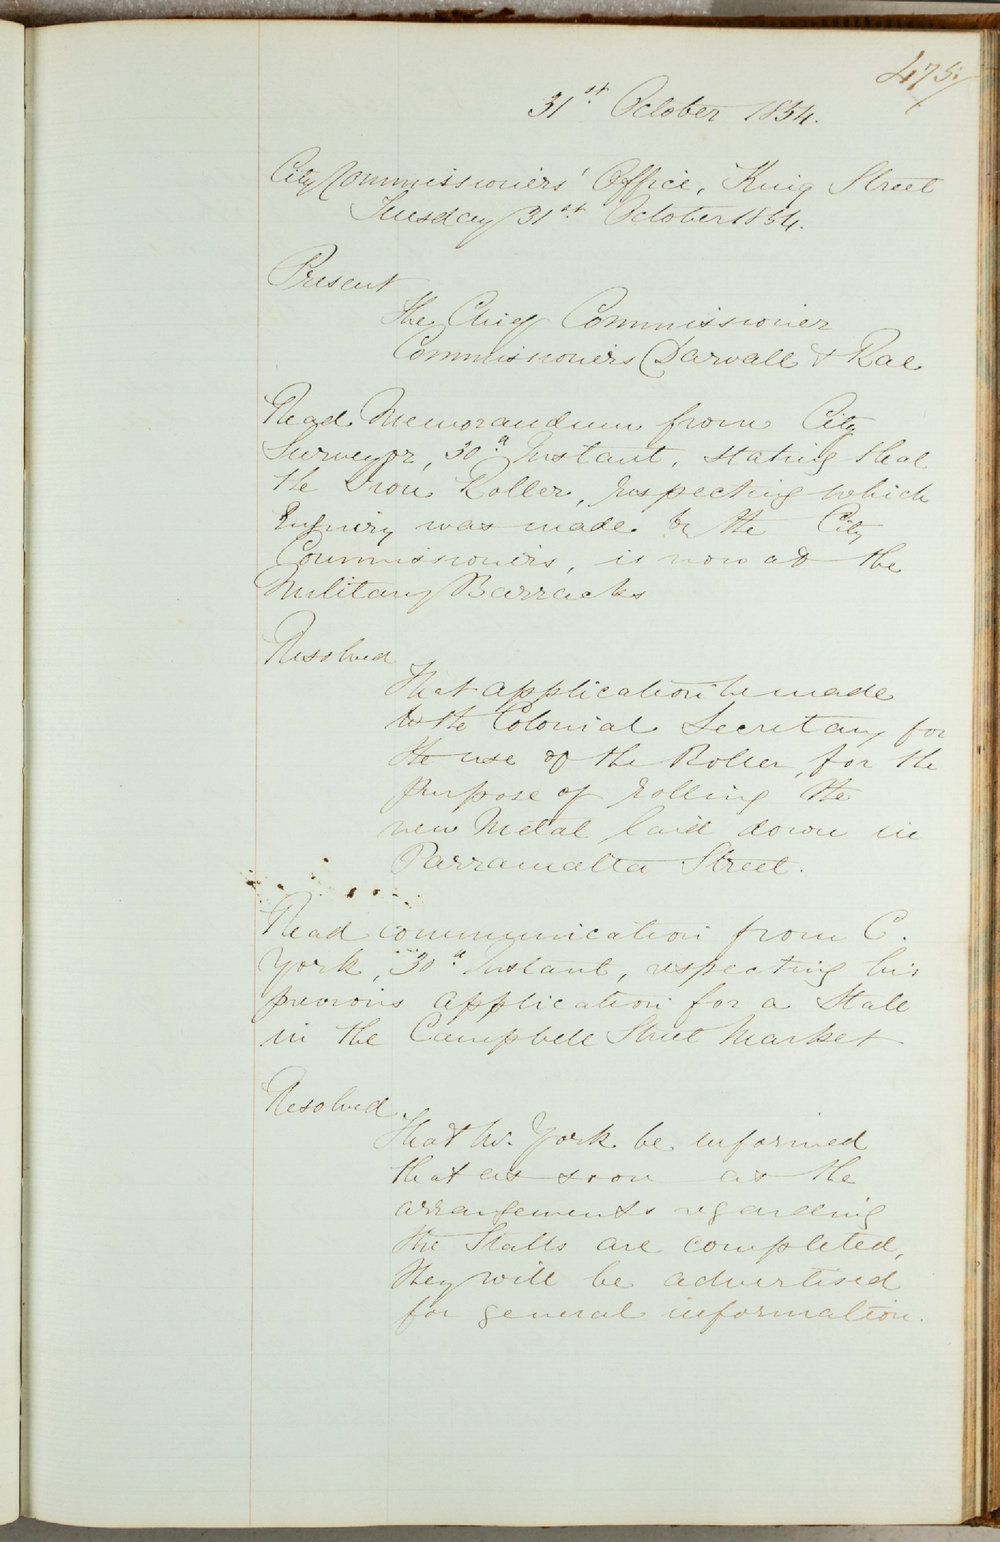 475
31st October 1854.
City Commissioners' Office, King Street
Tuesday 31st October 1854.
Present
The Chief Commissioner
Commissioners Darvall & Rae
Read Memorandum from City
Surveyor, 30th Instant, stating that
the Iron Roller, respecting which
Enquiry was made by the City
Commissioners, is now at the
Military Barracks
Resolved
That application be made
to the Colonial Secretary for
the use of the Roller, for the
purpose of rolling the
new Metal laid down in
Parramatta Street.
Read communication from C.
York, 30th Instant, respecting his
previous application for a Stall
in the Campbell Street Market
Resolved
That Mr. York be informed
that as soon as the
arrangements regarding
the Stalls are completed,
they will be advertised
for general information.